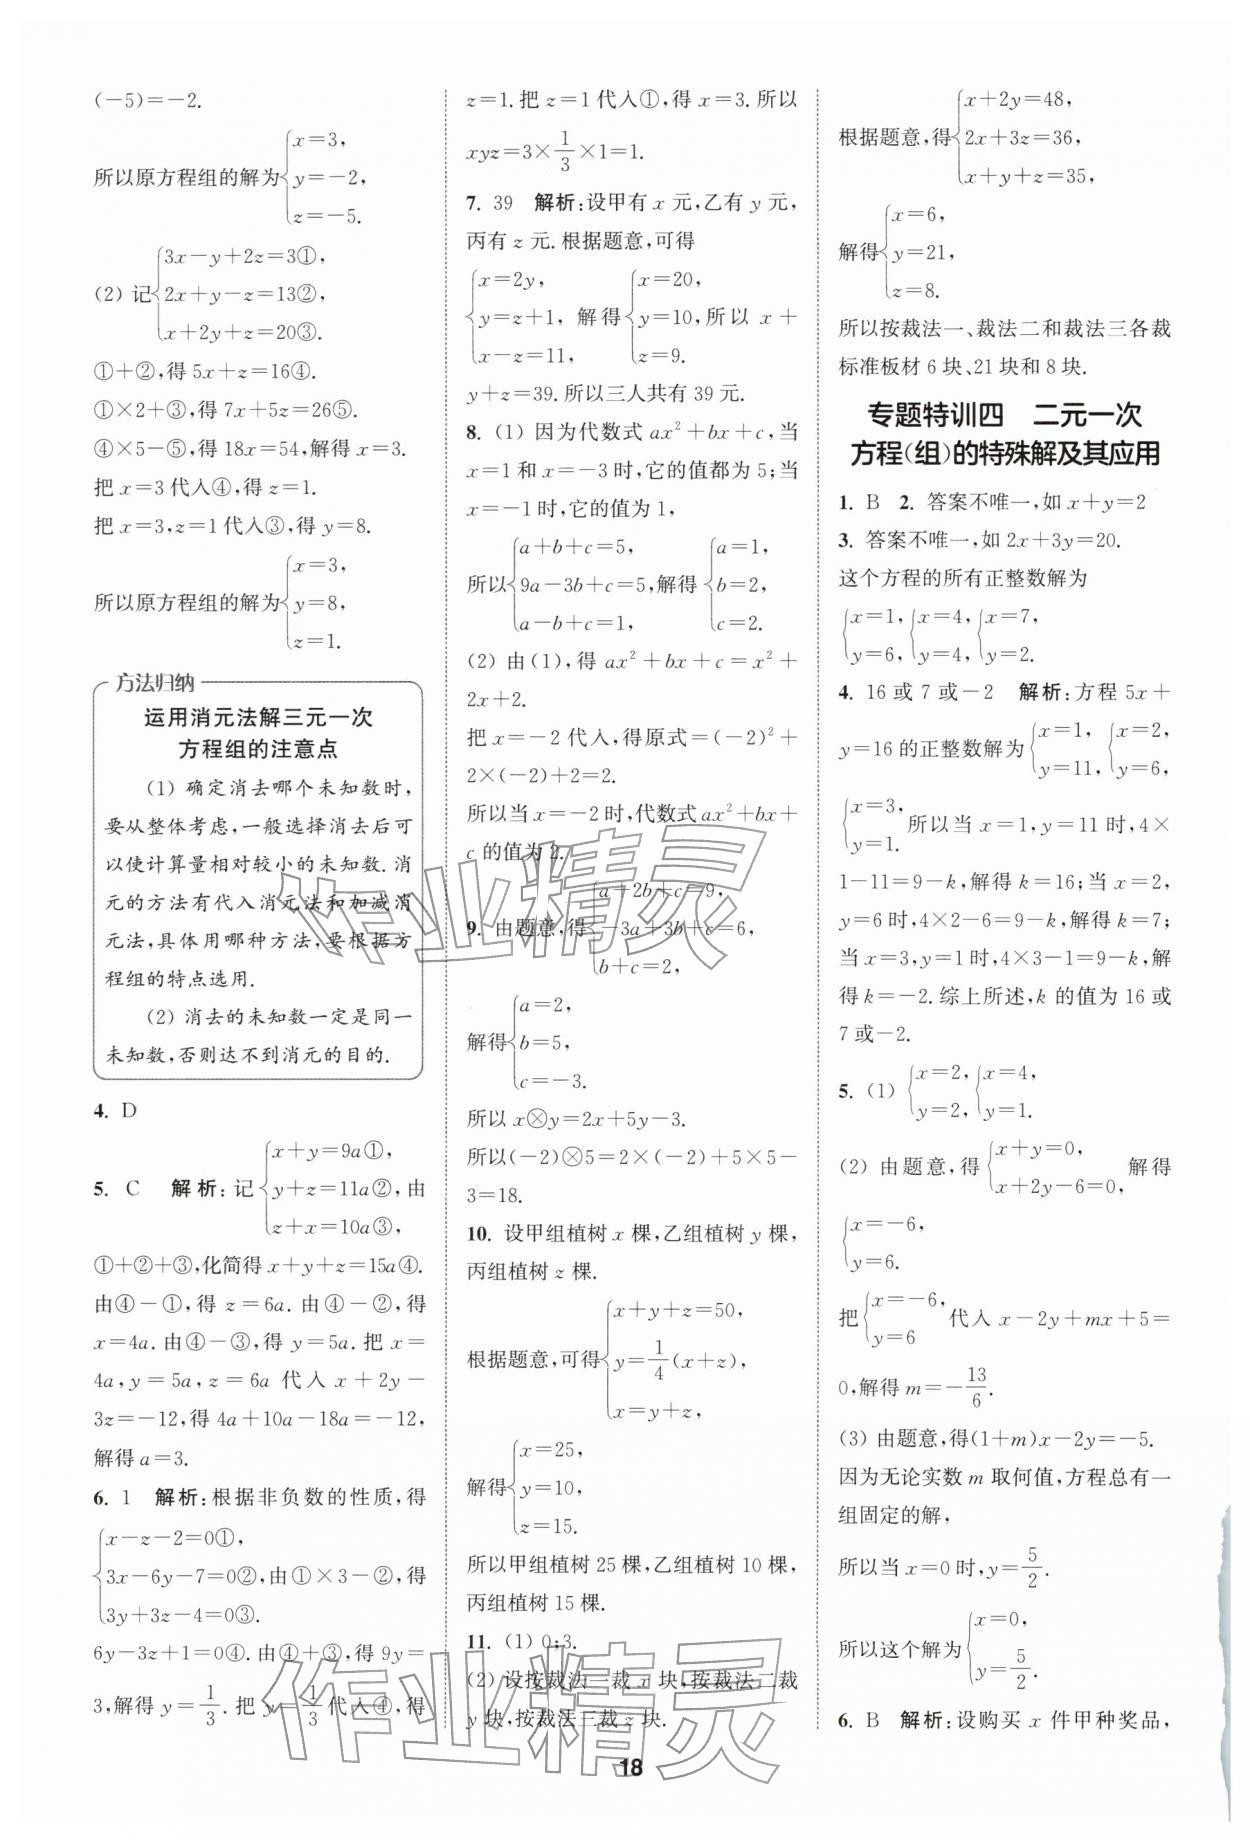 (－5)＝－2.
所以原方程组的解为{x＝3,
y＝－2,
z＝－5.
(2) 记{3x－y＋2z＝3①,
2x＋y－z＝13②,
x＋2y＋z＝20③.
①＋②,得 5x＋z＝16④.
①×2＋③,得 7x＋5z＝26⑤.
④×5－⑤,得 18x＝54,解得 x＝3.
把 x＝3 代入④,得 z＝1.
把 x＝3,z＝1 代入③,得 y＝8.
所以原方程组的解为{x＝3,
y＝8,
z＝1.
方法归纳
运用消元法解三元一次
方程组的注意点
(1) 确定消去哪个未知数时,
要从整体考虑,一般选择消去后可
以使计算量相对较小的未知数.消
元的方法有代入消元法和加减消
元法,具体用哪种方法,要根据方
程组的特点选用.
(2) 消去的未知数一定是同一
未知数,否则达不到消元的目的.
4. D
5. C 解析:记{x＋y＝9a①,
y＋z＝11a②,由
z＋x＝10a③,
①＋②＋③,化简得 x＋y＋z＝15a④.
由④－①,得 z＝6a.由④－②,得
x＝4a.由④－③,得 y＝5a.把 x＝
4a,y＝5a,z＝6a 代入 x＋2y－
3z＝－12,得 4a＋10a－18a＝－12,
解得 a＝3.
6. 1 解析:根据非负数的性质,得
{x－z－2＝0①,
3x－6y－7＝0②,由①×3－②,得
3y＋3z－4＝0③.
6y－3z＋1＝0④.由④＋③,得 9y＝
3,解得 y＝1/3.把 y＝1/3 代入④,得
z＝1.把 z＝1 代入①,得 x＝3.所以
xyz＝3×1/3×1＝1.
7. 39 解析:设甲有 x 元,乙有 y 元,
丙有 z 元.根据题意,可得
{x＝2y,
y＝z＋1,
x－z＝11,
解得{x＝20,
y＝10,所以 x＋
z＝9.
y＋z＝39.所以三人共有 39 元.
8. (1) 因为代数式 ax²＋bx＋c,当
x＝1 和 x＝－3 时,它的值都为 5;当
x＝－1 时,它的值为 1,
所以{a＋b＋c＝5,
9a－3b＋c＝5,
a－b＋c＝1,
解得{a＝1,
b＝2,
c＝2.
(2) 由(1),得 ax²＋bx＋c＝x²＋
2x＋2.
把 x＝－2 代入,得原式＝(－2)²＋
2×(－2)＋2＝2.
所以当 x＝－2 时,代数式 ax²＋bx＋
c 的值为 2.
9. 由题意,得{a＋2b＋c＝9,
－3a＋3b＋c＝6,
b＋c＝2,
解得{a＝2,
b＝5,
c＝－3.
所以 x⊗y＝2x＋5y－3.
所以(－2)⊗5＝2×(－2)＋5×5－
3＝18.
10. 设甲组植树 x 棵,乙组植树 y 棵,
丙组植树 z 棵.
根据题意,可得{x＋y＋z＝50,
y＝1/4(x＋z),
x＝y＋z,
解得{x＝25,
y＝10,
z＝15.
所以甲组植树 25 棵,乙组植树 10 棵,
丙组植树 15 棵.
11. (1) 0;3.
(2) 设按裁法一裁 x 块,按裁法二裁
y 块,按裁法三裁 z 块.
根据题意,得{x＋2y＝48,
2x＋3z＝36,
x＋y＋z＝35,
解得{x＝6,
y＝21,
z＝8.
所以按裁法一、裁法二和裁法三各裁
标准板材 6 块、21 块和 8 块.
专题特训四 二元一次
方程(组)的特殊解及其应用
1. B 2. 答案不唯一,如 x＋y＝2
3. 答案不唯一,如 2x＋3y＝20.
这个方程的所有正整数解为
{x＝1, {x＝4, {x＝7,
y＝6, y＝4, y＝2.
4. 16 或 7 或－2 解析:方程 5x＋
y＝16 的正整数解为{x＝1, {x＝2,
y＝11, y＝6,
{x＝3,
y＝1.
所以当 x＝1,y＝11 时,4×
1－11＝9－k,解得 k＝16;当 x＝2,
y＝6 时,4×2－6＝9－k,解得 k＝7;
当 x＝3,y＝1 时,4×3－1＝9－k,解
得 k＝－2.综上所述,k 的值为 16 或
7 或－2.
5. (1) {x＝2, {x＝4,
y＝2, y＝1.
(2) 由题意,得{x＋y＝0,
x＋2y－6＝0,
解得
{x＝－6,
y＝6.
把{x＝－6,
y＝6
代入 x－2y＋mx＋5＝
0,解得 m＝－13/6.
(3) 由题意,得(1＋m)x－2y＝－5.
因为无论实数 m 取何值,方程总有一
组固定的解,
所以当 x＝0 时,y＝5/2.
所以这个解为{x＝0,
y＝5/2.
6. B 解析:设购买 x 件甲种奖品,
18
作业精灵
作业精灵